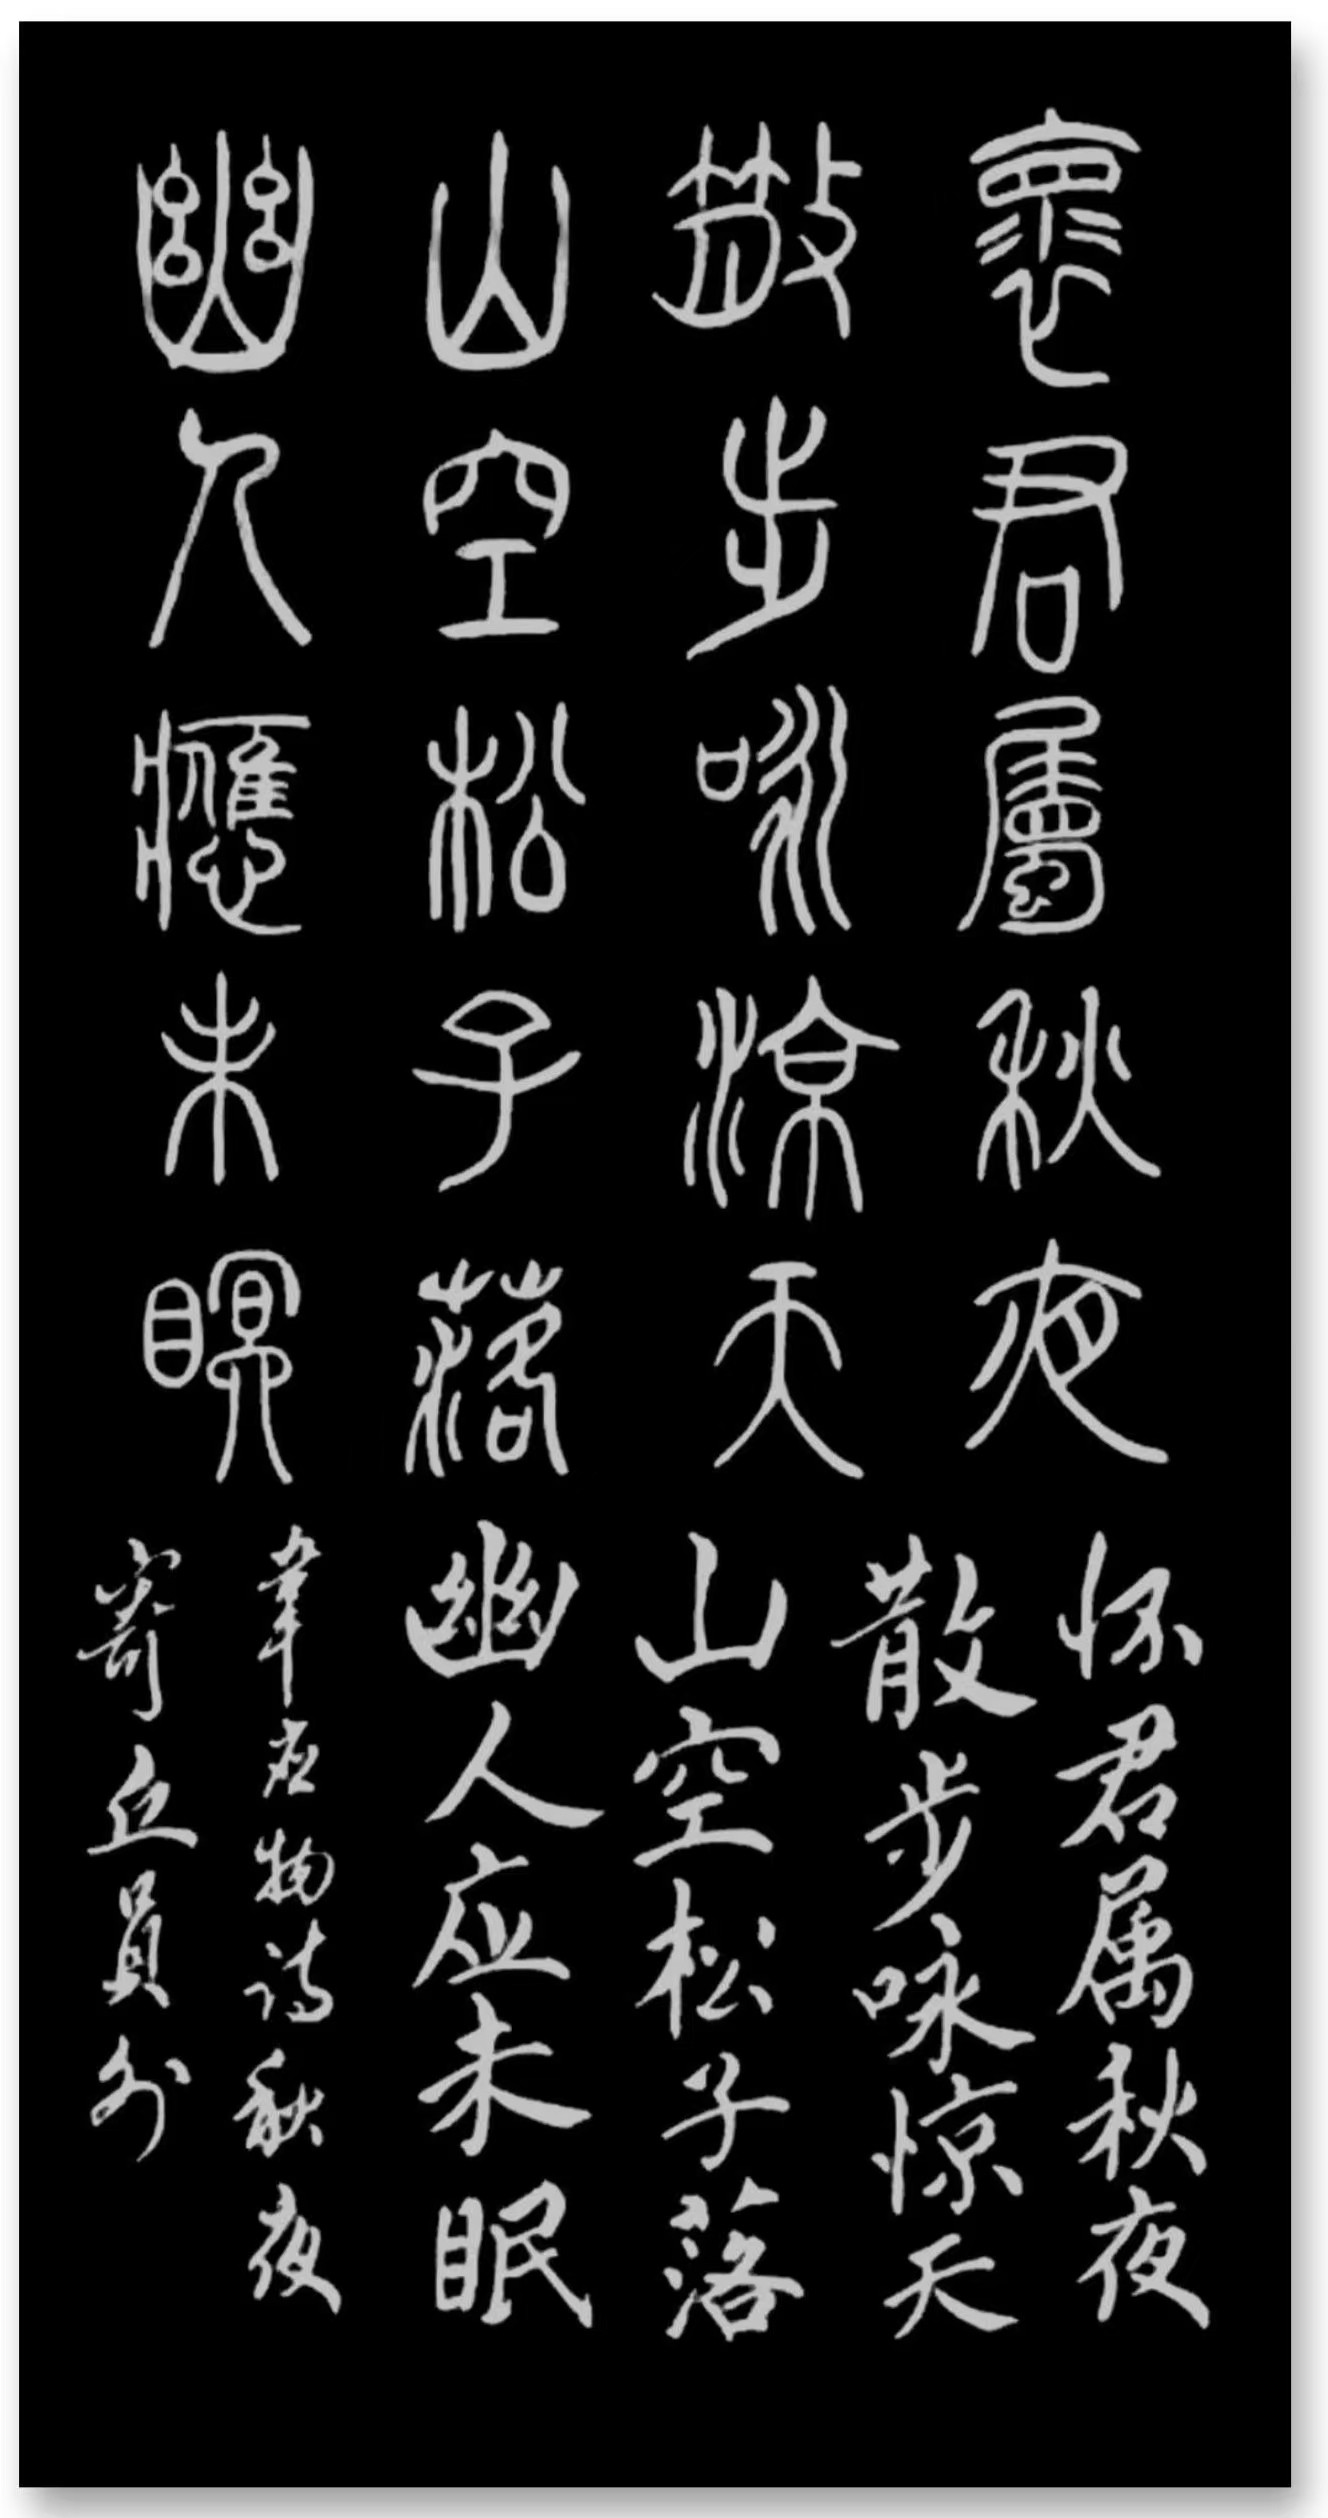 褱君屬秋夜
散步咏涼天
山空松子落
幽人應未瞑
怀君属秋夜
散步咏惊天
山空松子落
幽人应未眠
韋应物诗秋夜
寄丘員外